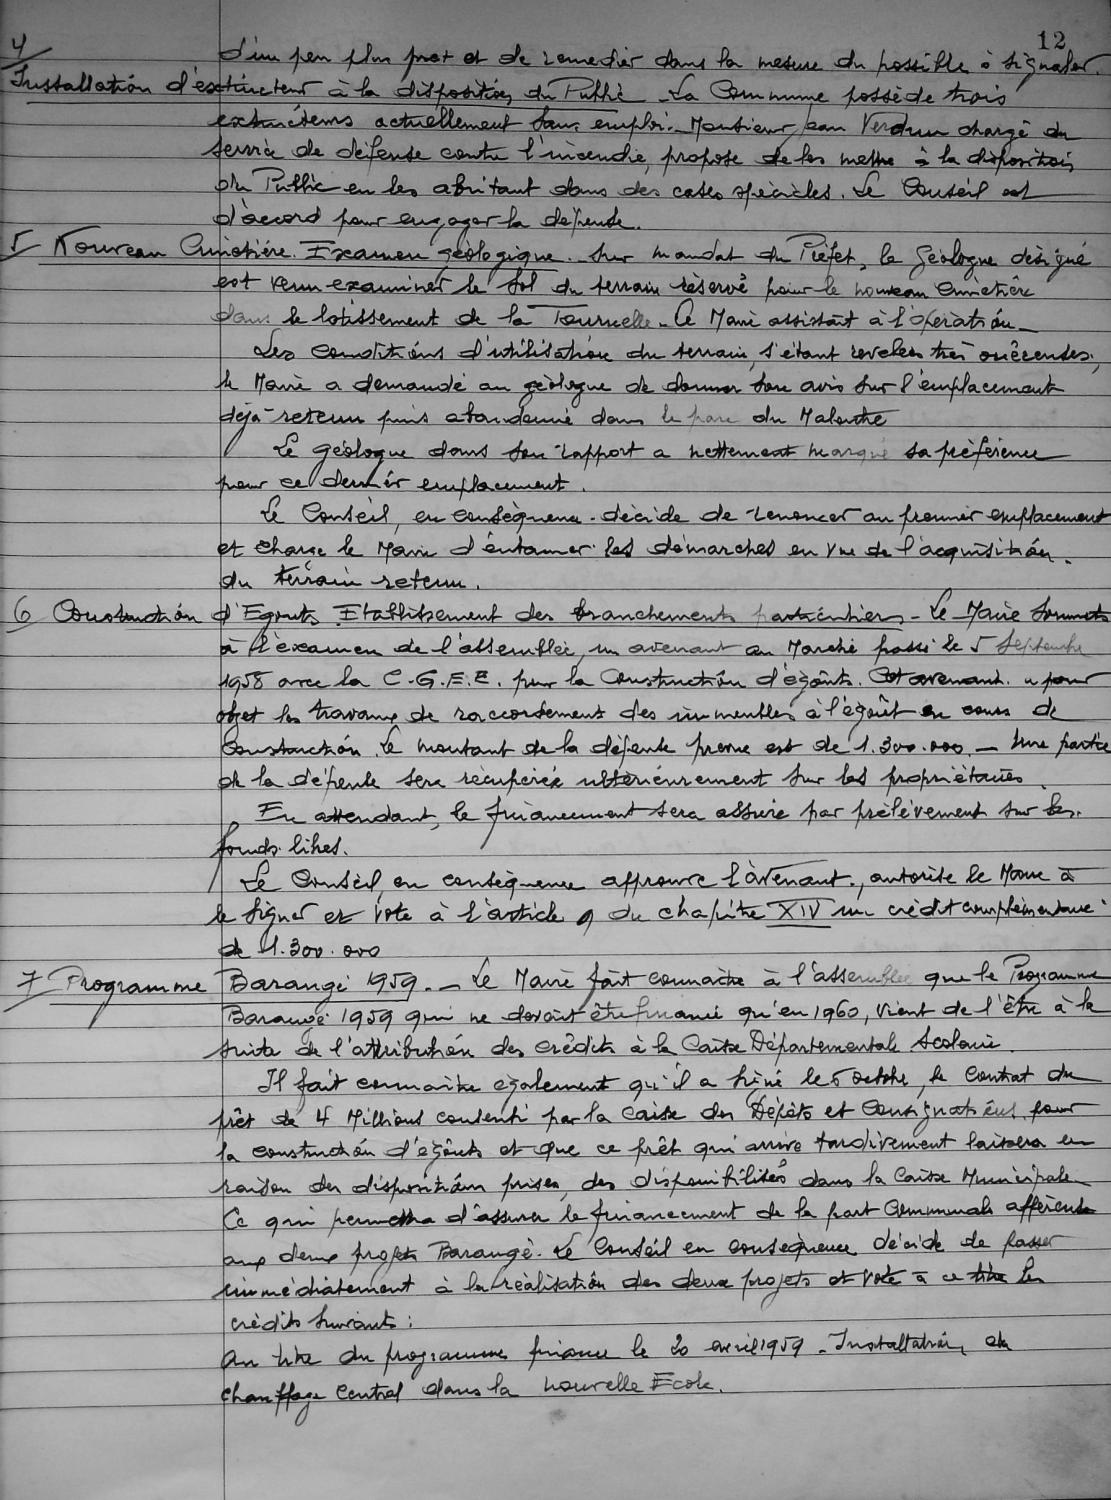 12
4/ d'un peu plus près et de remedier dans la mesure du possible à signaler.
Installation d'extincteur à la disposition du Public - La Commune possède trois
extincteurs actuellement sans emploi. Monsieur Jean Verdun chargé du
service de défense contre l'incendie, propose de les mettre à la disposition
du Public en les abritant dans des cases spéciales. Le Conseil est
d'accord pour engager la dépense.
5/ Nouveau Cimetière. Examen géologique. Sur mandat du Préfet, le Géologue désigné
est venu examiner le sol du terrain réservé pour le nouveau cimetière
dans le lotissement de la Tournelle. Le Maire assistait à l'opération.
Les conditions d'utilisation du terrain, s'étant revelées très onéreuses,
le Maire a demandé au géologue de donner son avis sur l'emplacement
déjà retenu puis abandonné dans le parc du
Le géologue dans son rapport a nettement marqué sa préférence
pour ce dernier emplacement.
Le Conseil, en conséquence décide de renoncer au premier emplacement
et charge le Maire d'entamer les démarches en vue de l'acquisition
du terrain retenu.
6/ Construction d'Egouts. Etablissement des branchements particuliers - Le Maire soumet
à l'examen de l'assemblée, un avenant au Marché passé le 5 Septembre
1958 avec la C.G.E.E. pour la Construction d'égoûts. Cet avenant a pour
objet les travaux de raccordement des immeubles à l'égoût en cours de
Construction. Le montant de la dépense prévue est de 1.300.000 - Une partie
de la dépense sera récupérée ultérieurement sur les propriétaires
En attendant, le financement sera assuré par prélèvement sur les
fonds libres.
Le Conseil, en conséquence approuve l'avenant, autorise le Maire à
le signer et vote à l'article 9 du chapitre XIV un crédit complémentaire
de 1.300.000
7/ Programme Barangé 1959. - Le Maire fait connaitre à l'assemblée que le Programme
Barangé 1959 qui ne devait être financé qu'en 1960, vient de l'être à la
suite de l'attribution des crédits à la Caisse Départementale Scolaire.
Il fait connaitre également qu'il a signé le 6 octobre, le contrat du
prêt de 4 Millions consenti par la Caisse des Dépôts et Consignations pour
la construction d'égoûts et que ce prêt qui arrive tardivement laissera en
raison des dispositions prises, des disponibilités dans la Caisse Municipale
Ce qui permettra d'assurer le financement de la part Communale afférente
aux deux projets Barangé. Le Conseil en conséquence décide de passer
immédiatement à la réalisation des deux projets et vote à ce titre les
crédits suivants :
Au titre du programme financé le 20 avril 1959 - Installation du
chauffage Central dans la nouvelle Ecole.